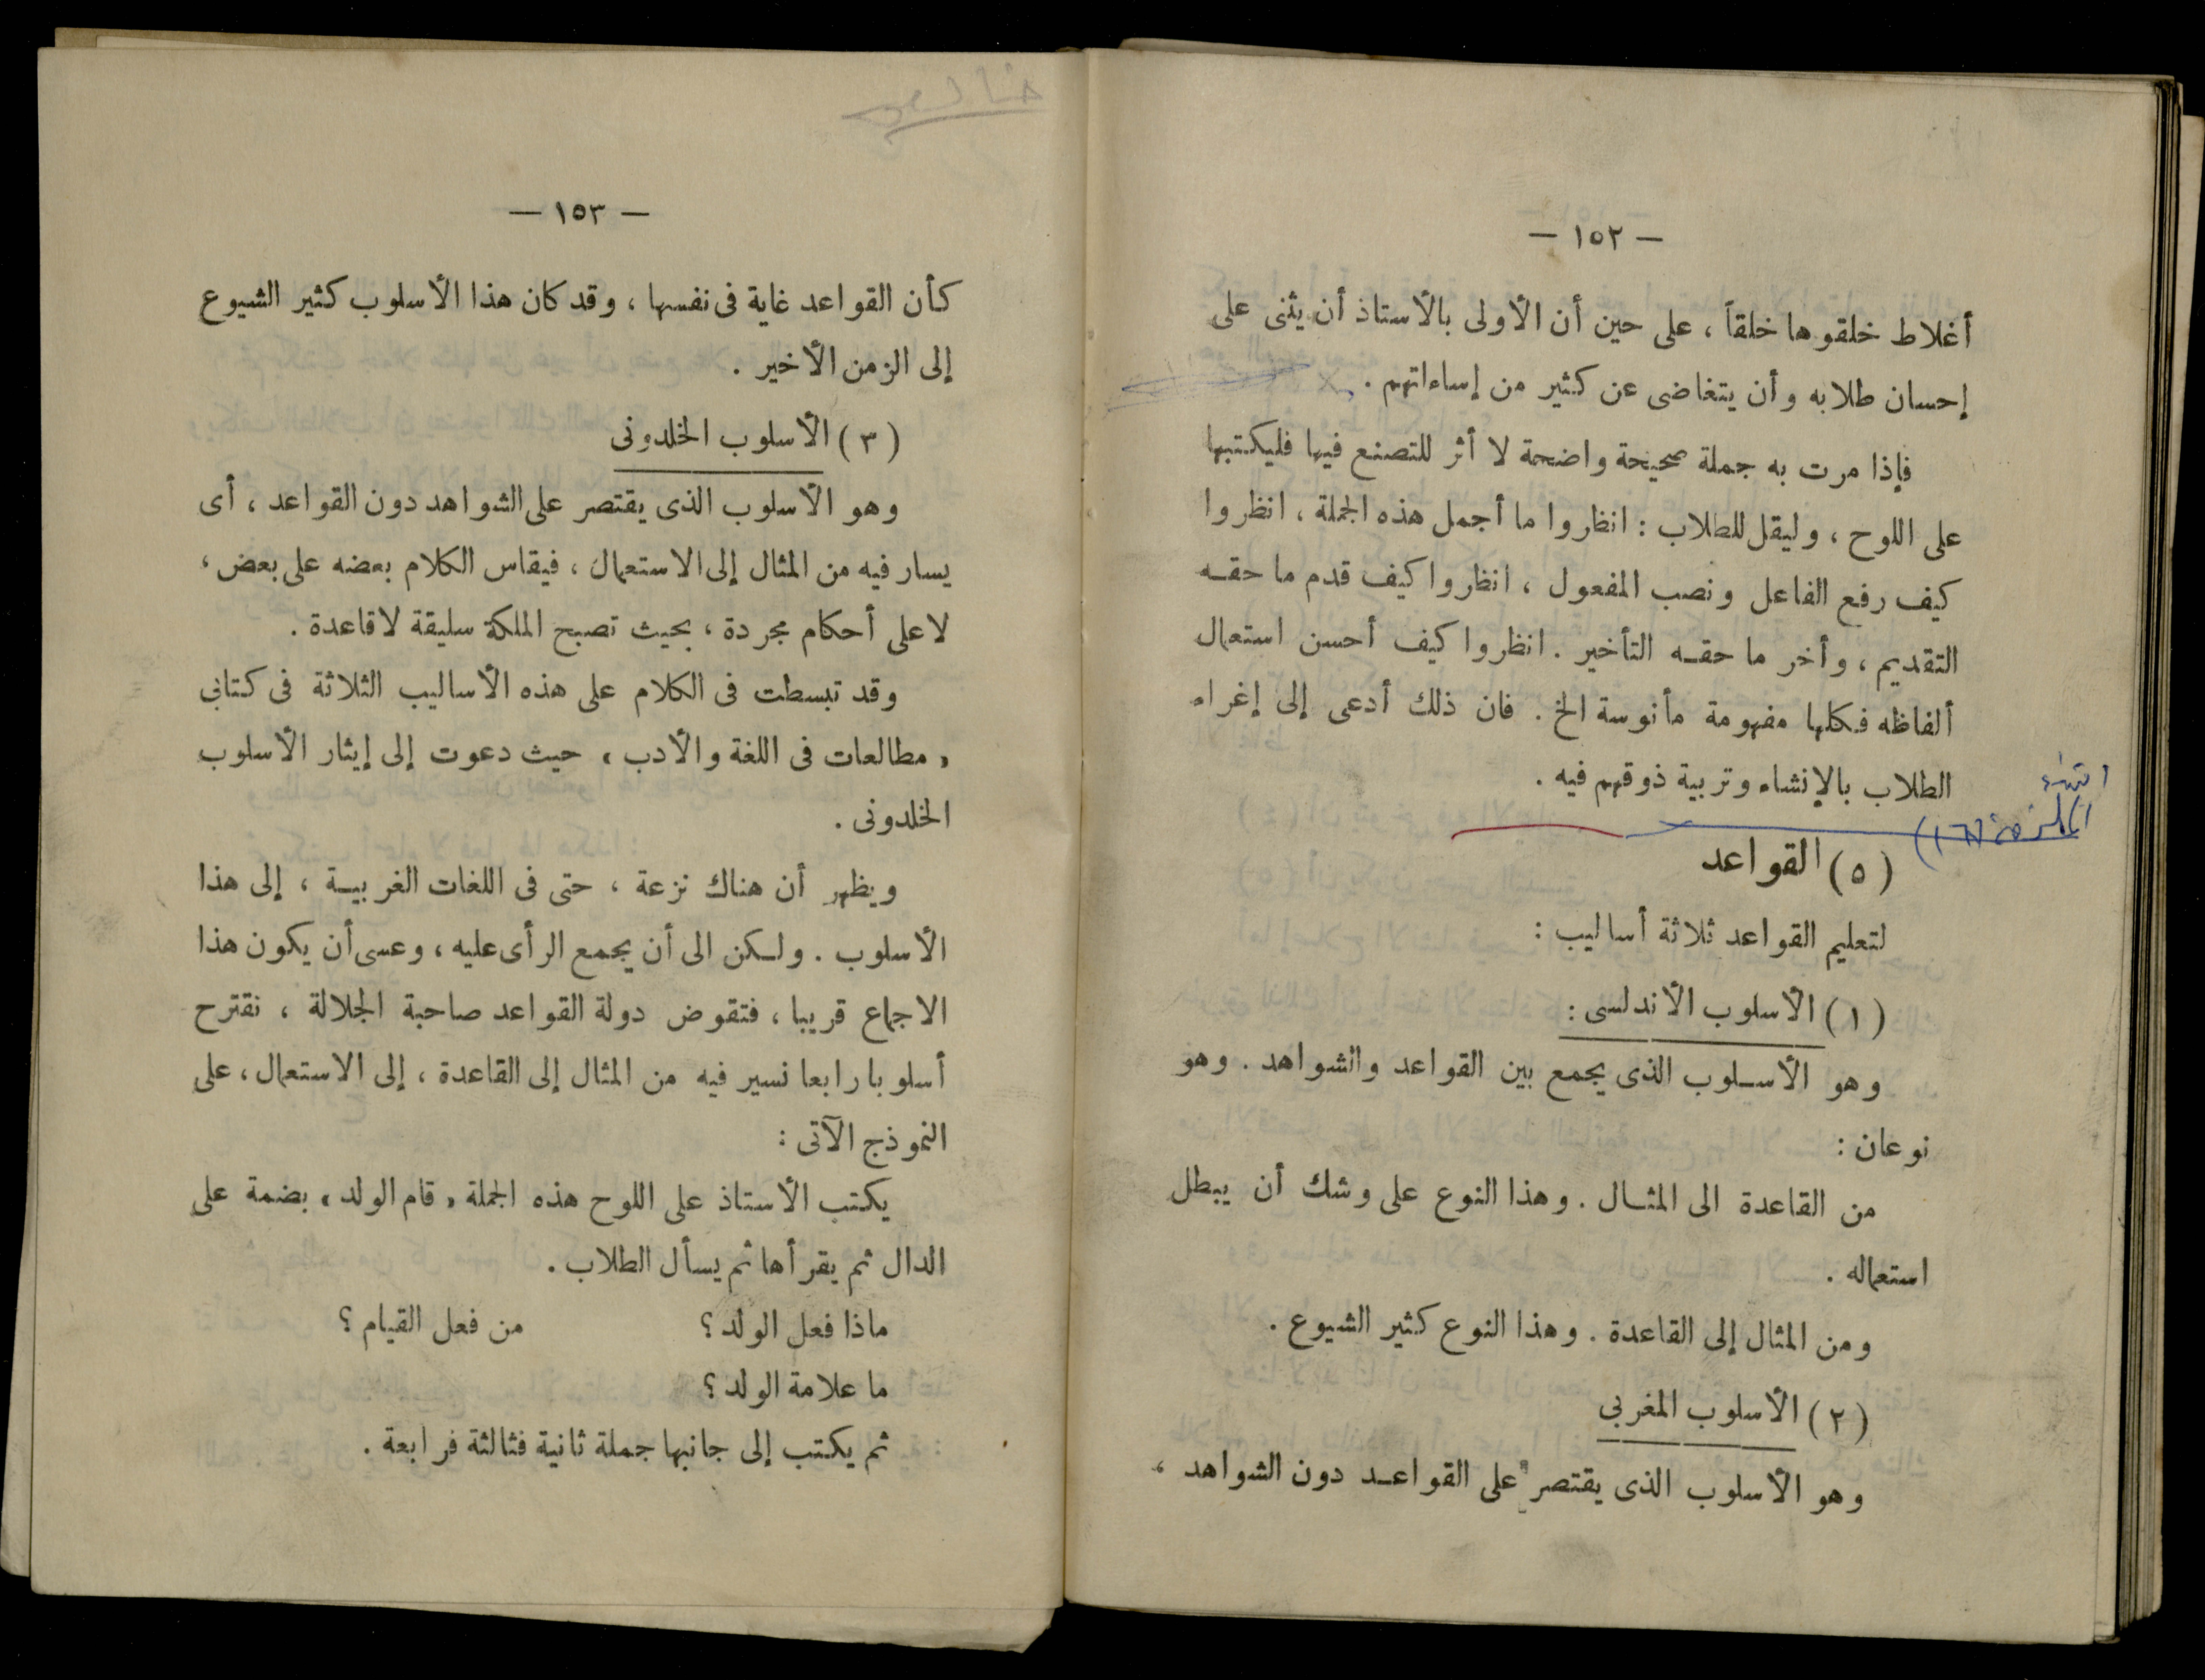 — ١٥٢ —
أغلاط خلقوها خلقاً ، على حين أن الأولى بالأستاذ أن يثنى على
إحسان طلابه وأن يتغاضى عن كثير من إساءاتهم .
فإذا مرت به جملة صحيحة واضحة لا أثر للتصنع فيها فليكتبها
على اللوح ، وليقل للطلاب : انظروا ما أجمل هذه الجملة ، انظروا
كيف رفع الفاعل ونصب المفعول ، انظروا كيف قدم ما حقه
التقديم ، وأخر ما حقه التأخير . انظروا كيف أحسن استعمال
ألفاظه فكلها مفهومة مأنوسة الخ . فان ذلك أدعى إلى إغراء
الطلاب بالإنشاء وتربية ذوقهم فيه .
(٥) القواعد
لتعليم القواعد ثلاثة أساليب :
(١) الأسلوب الأندلسى :
وهو الأسلوب الذى يجمع بين القواعد والشواهد . وهو
نوعان :
من القاعدة الى المثال . وهذا النوع على وشك أن يبطل
استعماله .
ومن المثال إلى القاعدة . وهذا النوع كثير الشيوع .
(٢) الأسلوب المغربي
وهو الأسلوب الذى يقتصر على القواعد دون الشواهد ،
— ١٥٣ —
كأن القواعد غاية فى نفسها ، وقد كان هذا الأسلوب كثير الشيوع
إلى الزمن الأخير .
(٣) الأسلوب الخلدونى
وهو الأسلوب الذى يقتصر على الشواهد دون القواعد ، أى
يسار فيه من المثال إلى الاستعمال ، فيقاس الكلام بعضه على بعض ،
لا على أحكام مجردة ، بحيث تصبح الملكة سليقة لا قاعدة .
وقد تبسطت فى الكلام على هذه الأساليب الثلاثة فى كتابى
« مطالعات فى اللغة والأدب » حيث دعوت إلى إيثار الأسلوب
الخلدونى .
ويظهر أن هناك نزعة ، حتى فى اللغات الغربية ، إلى هذا
الأسلوب . ولكن الى أن يجمع الرأى عليه ، وعسى أن يكون هذا
الاجماع قريبا ، فتقوض دولة القواعد صاحبة الجلالة ، نقترح
أسلوبا رابعا نسير فيه من المثال إلى القاعدة ، إلى الاستعمال ، على
النموذج الآتى :
يكتب الأستاذ على اللوح هذه الجملة « قام الولد » بضمة على
الدال ثم يقرأها ثم يسأل الطلاب .
ماذا فعل الولد ؟ من فعل القيام ؟
ما علامة الولد ؟
ثم يكتب إلى جانبها جملة ثانية فثالثة فرابعة .